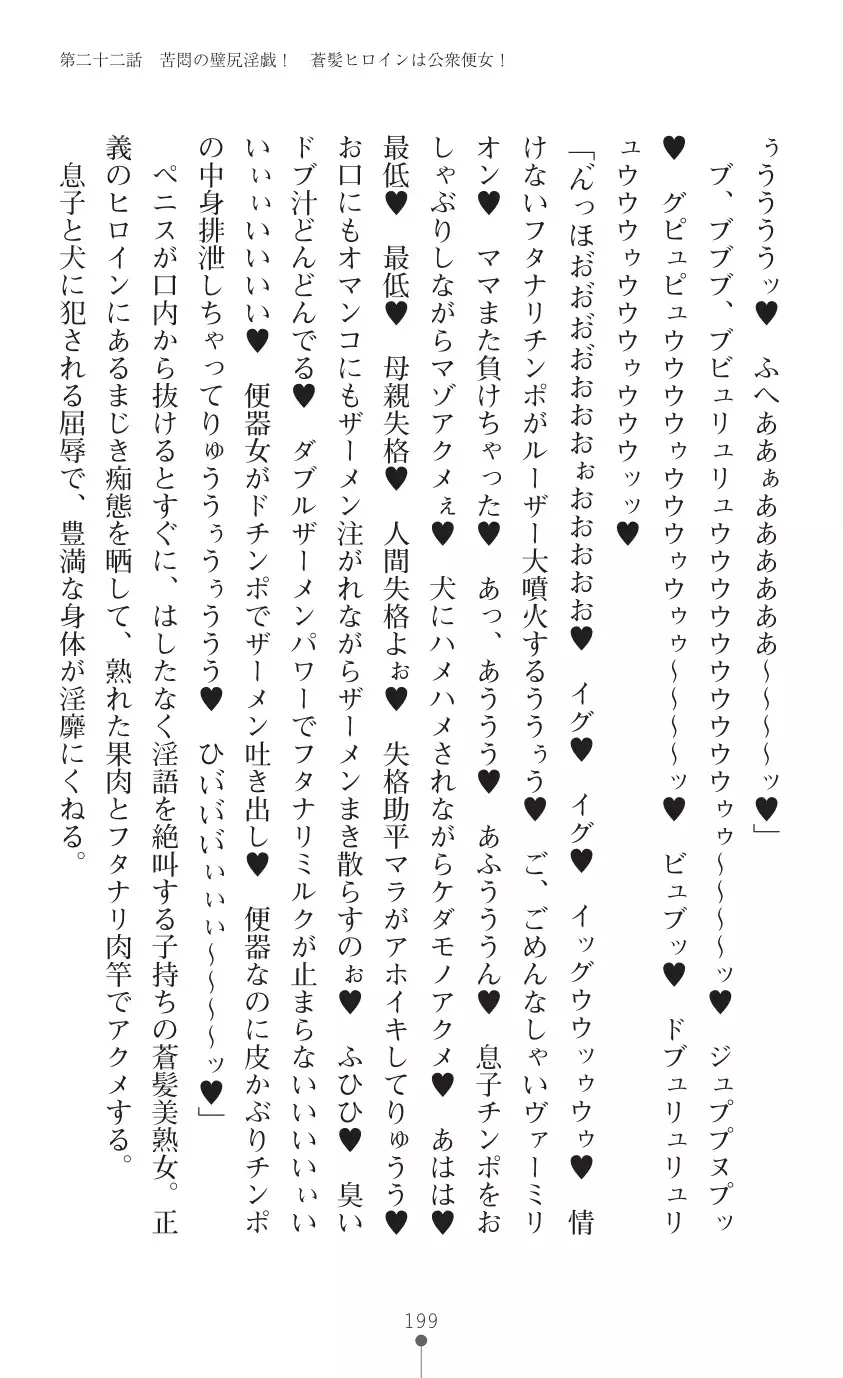 第二十二話　苦悶の壁尻淫戯！　蒼髪ヒロインは公衆便女！
ぅうううぅッ♥　ふへああぁあああああああ～～～～ッ♥」
　ブ、ブブブ、ブビュリュリュウウウウウウウウウウウゥゥ～～～～ッ♥　ジュププヌプッ
♥　グピュピュウウウウゥウウウゥウゥゥ～～～～ッ♥　ビュブッ♥　ドブュリュリュリ
ュウウウゥウウウゥウウウッッ♥
「ん゛っほお゛お゛お゛お゛おおおぉおおおおお♥　イグ♥　イグ♥　イッグウウッゥウゥ♥　情
けないフタナリチンポがルーザー大噴火するううぅう♥　ご、ごめんなしゃいヴァーミリ
オン♥　ママまた負けちゃった♥　あっ、あううう♥　あふうううん♥　息子チンポをお
しゃぶりしながらマゾアクメぇ♥　犬にハメハメされながらケダモノアクメ♥　あはは♥
最低♥　最低♥　母親失格♥　人間失格よぉ♥　失格助平マラがアホイキしてりゅうう♥
お口にもオマンコにもザーメン注がれながらザーメンまき散らすのぉ♥　ふひひ♥　臭い
ドブ汁どんどんでる♥　ダブルザーメンパワーでフタナリミルクが止まらないいいいぃい
いいぃいいいい♥　便器女がドチンポでザーメン吐き出し♥　便器なのに皮かぶりチンポ
の中身排泄しちゃってりゅううぅうぅううう♥　ひい゛い゛い゛ぃぃぃ～～～～ッ♥」
　ペニスが口内から抜けるとすぐに、はしたなく淫語を絶叫する子持ちの蒼髪美熟女。正
義のヒロインにあるまじき痴態を晒して、熟れた果肉とフタナリ肉竿でアクメする。
　息子と犬に犯される屈辱で、豊満な身体が淫靡にくねる。
199